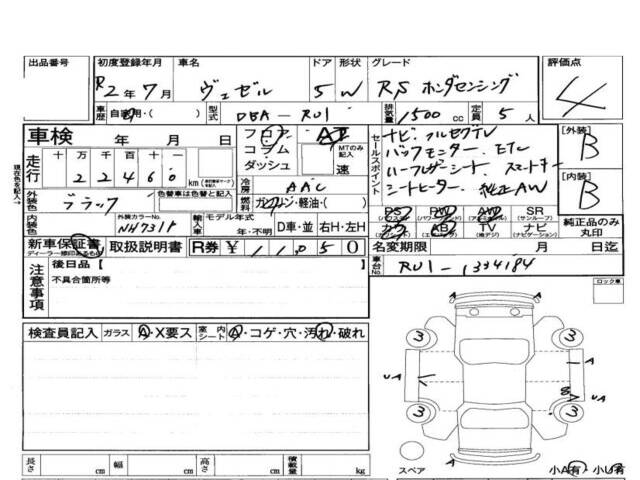 出品番号 初度登録年月 車名 ドア 形状 グレード 評価点
R2年7月 ヴェゼル 5 W RS ホンダセンシング 4
車歴 自家用・( ) 型式 DBA-RU1 排気量 1500 cc 定員 5人
車検 年 月 日 フロア AT セールスポイント ナビ・フルセグTV [外装] B
走行 十 万 千 百 十 一 コラム MTのみ記入 バックモニター、ETC
22460 km ダッシュ 速 ハーフレザーシート スマートキー
現在色を記入→ 外装色 ブラック 色替車は色替と記入 冷房 AAC シートヒーター 純正AW [内装] B
燃料 ガソリン・軽油( )
外装カラーNo. NH731P 輸入車 モデル年式 年・不明 D車・並 右H・左H
内装色
PS PW AW SR 純正品のみ丸印
(パワステ) (パワーウィンドウ) (アルミホイール) (サンルーフ)
カワ AB TV ナビ
(エアバッグ) (地デジ) (ナビゲーション)
新車保証書 取扱説明書 R券 ¥ 11050 名変期限 月 日迄
ディーラー捺印あるもの
車台No. RU1-1334184
注意事項 後日品【 】 ロック車
不具合箇所等
検査員記入 ガラス A・X要ス 室内シート A・コゲ・穴・汚れ・破れ
3 A 3
UA UA
3 A 3
長さ cm 幅 cm 高さ cm 積載量 kg スペア 小A有・小U有